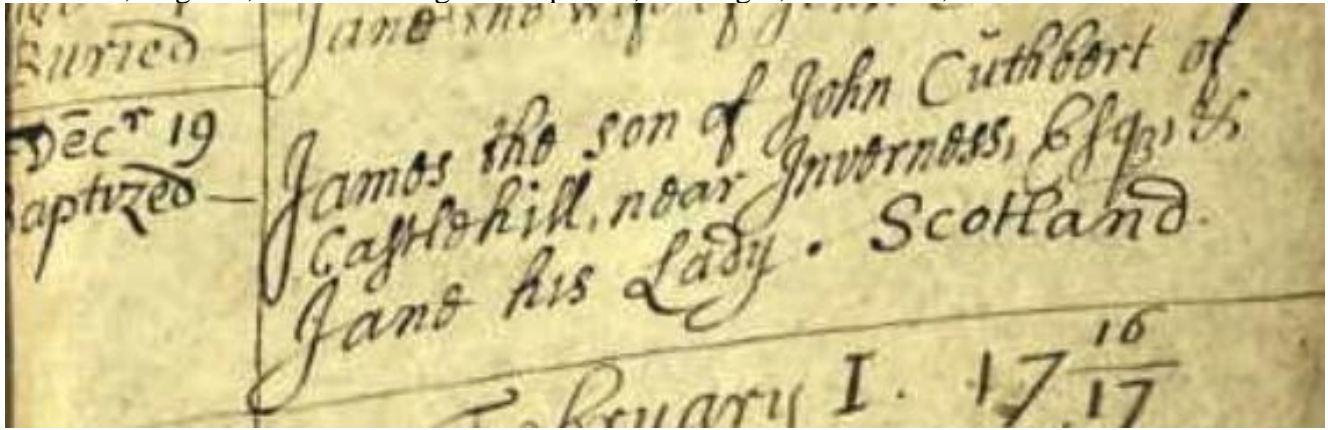 Buried —
Jane the wife of John
Decr 19
Baptized —
James the son of John Cuthbert of
Castlehill, near Inverness, Esqr, &
Jane his Lady. Scotland.
February I. 17 16/17